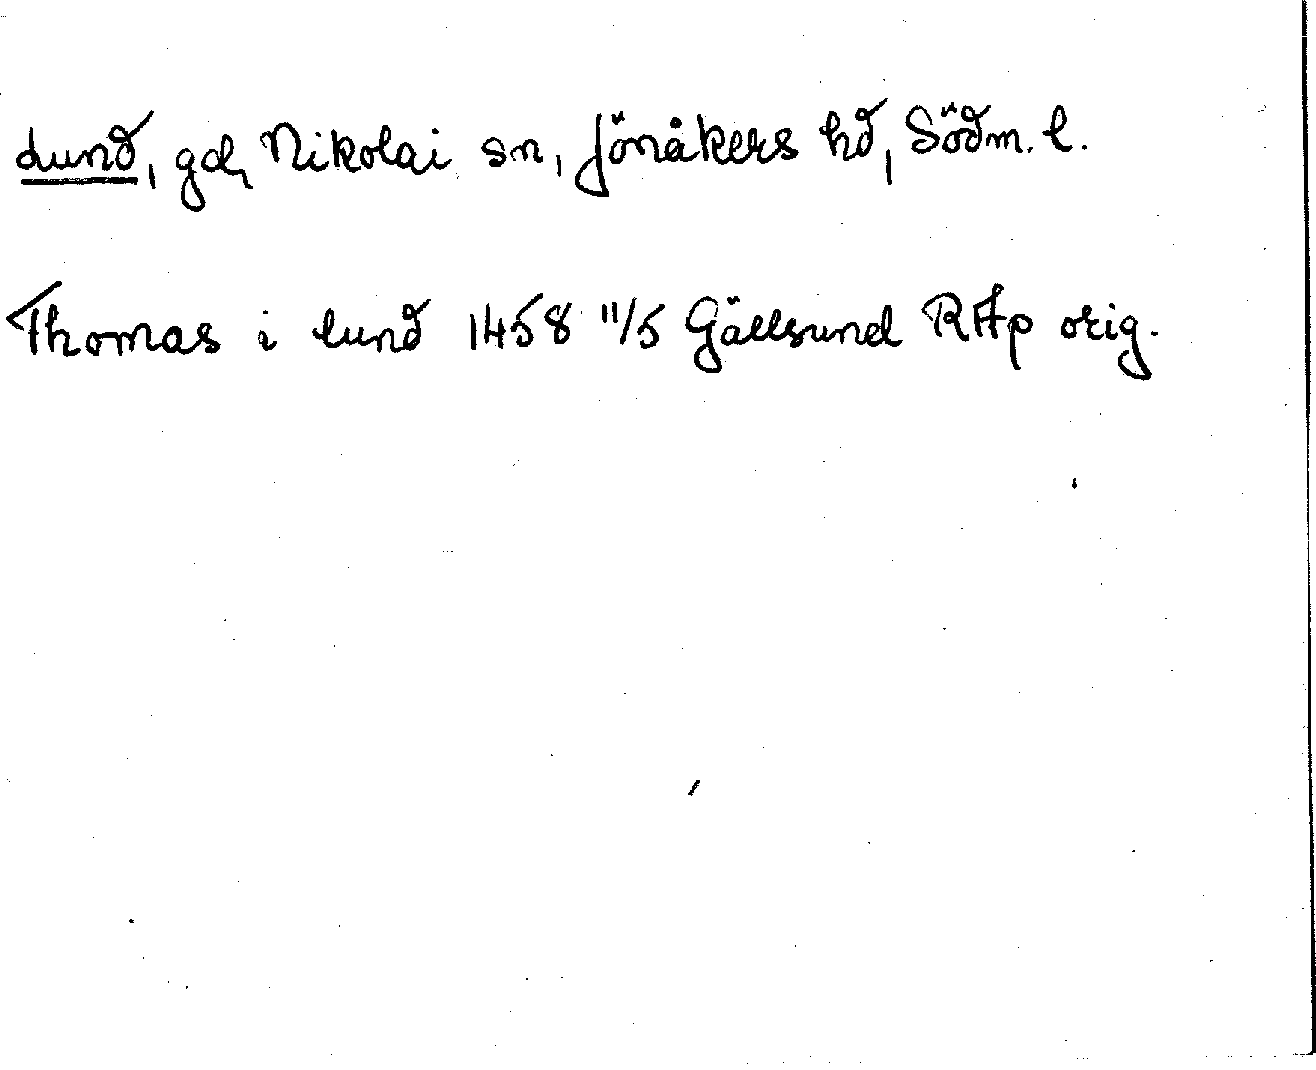 Lund, gd, Nikolai sn, Jönåkers hd, Södm. l.
Thomas i lund 1458 11/5 Gällsund RAp orig.